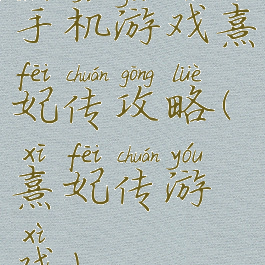 手机游戏熹
fēi chuán gōng lüè
妃传攻略(
xī fēi chuán yóu
熹妃传游
xì
戏)